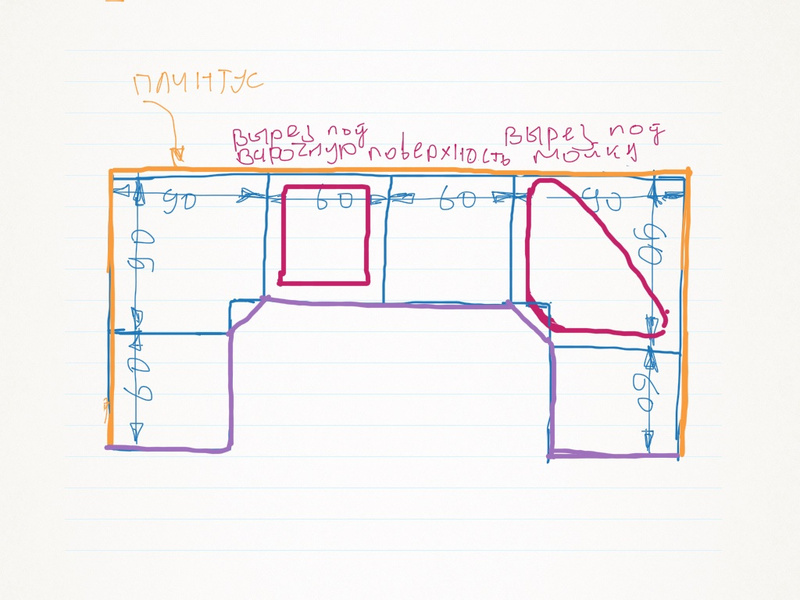 ПЛИНТУС
вырез под
варочную поверхность
вырез под
мойку
90
60
60
90
90
90
60
60